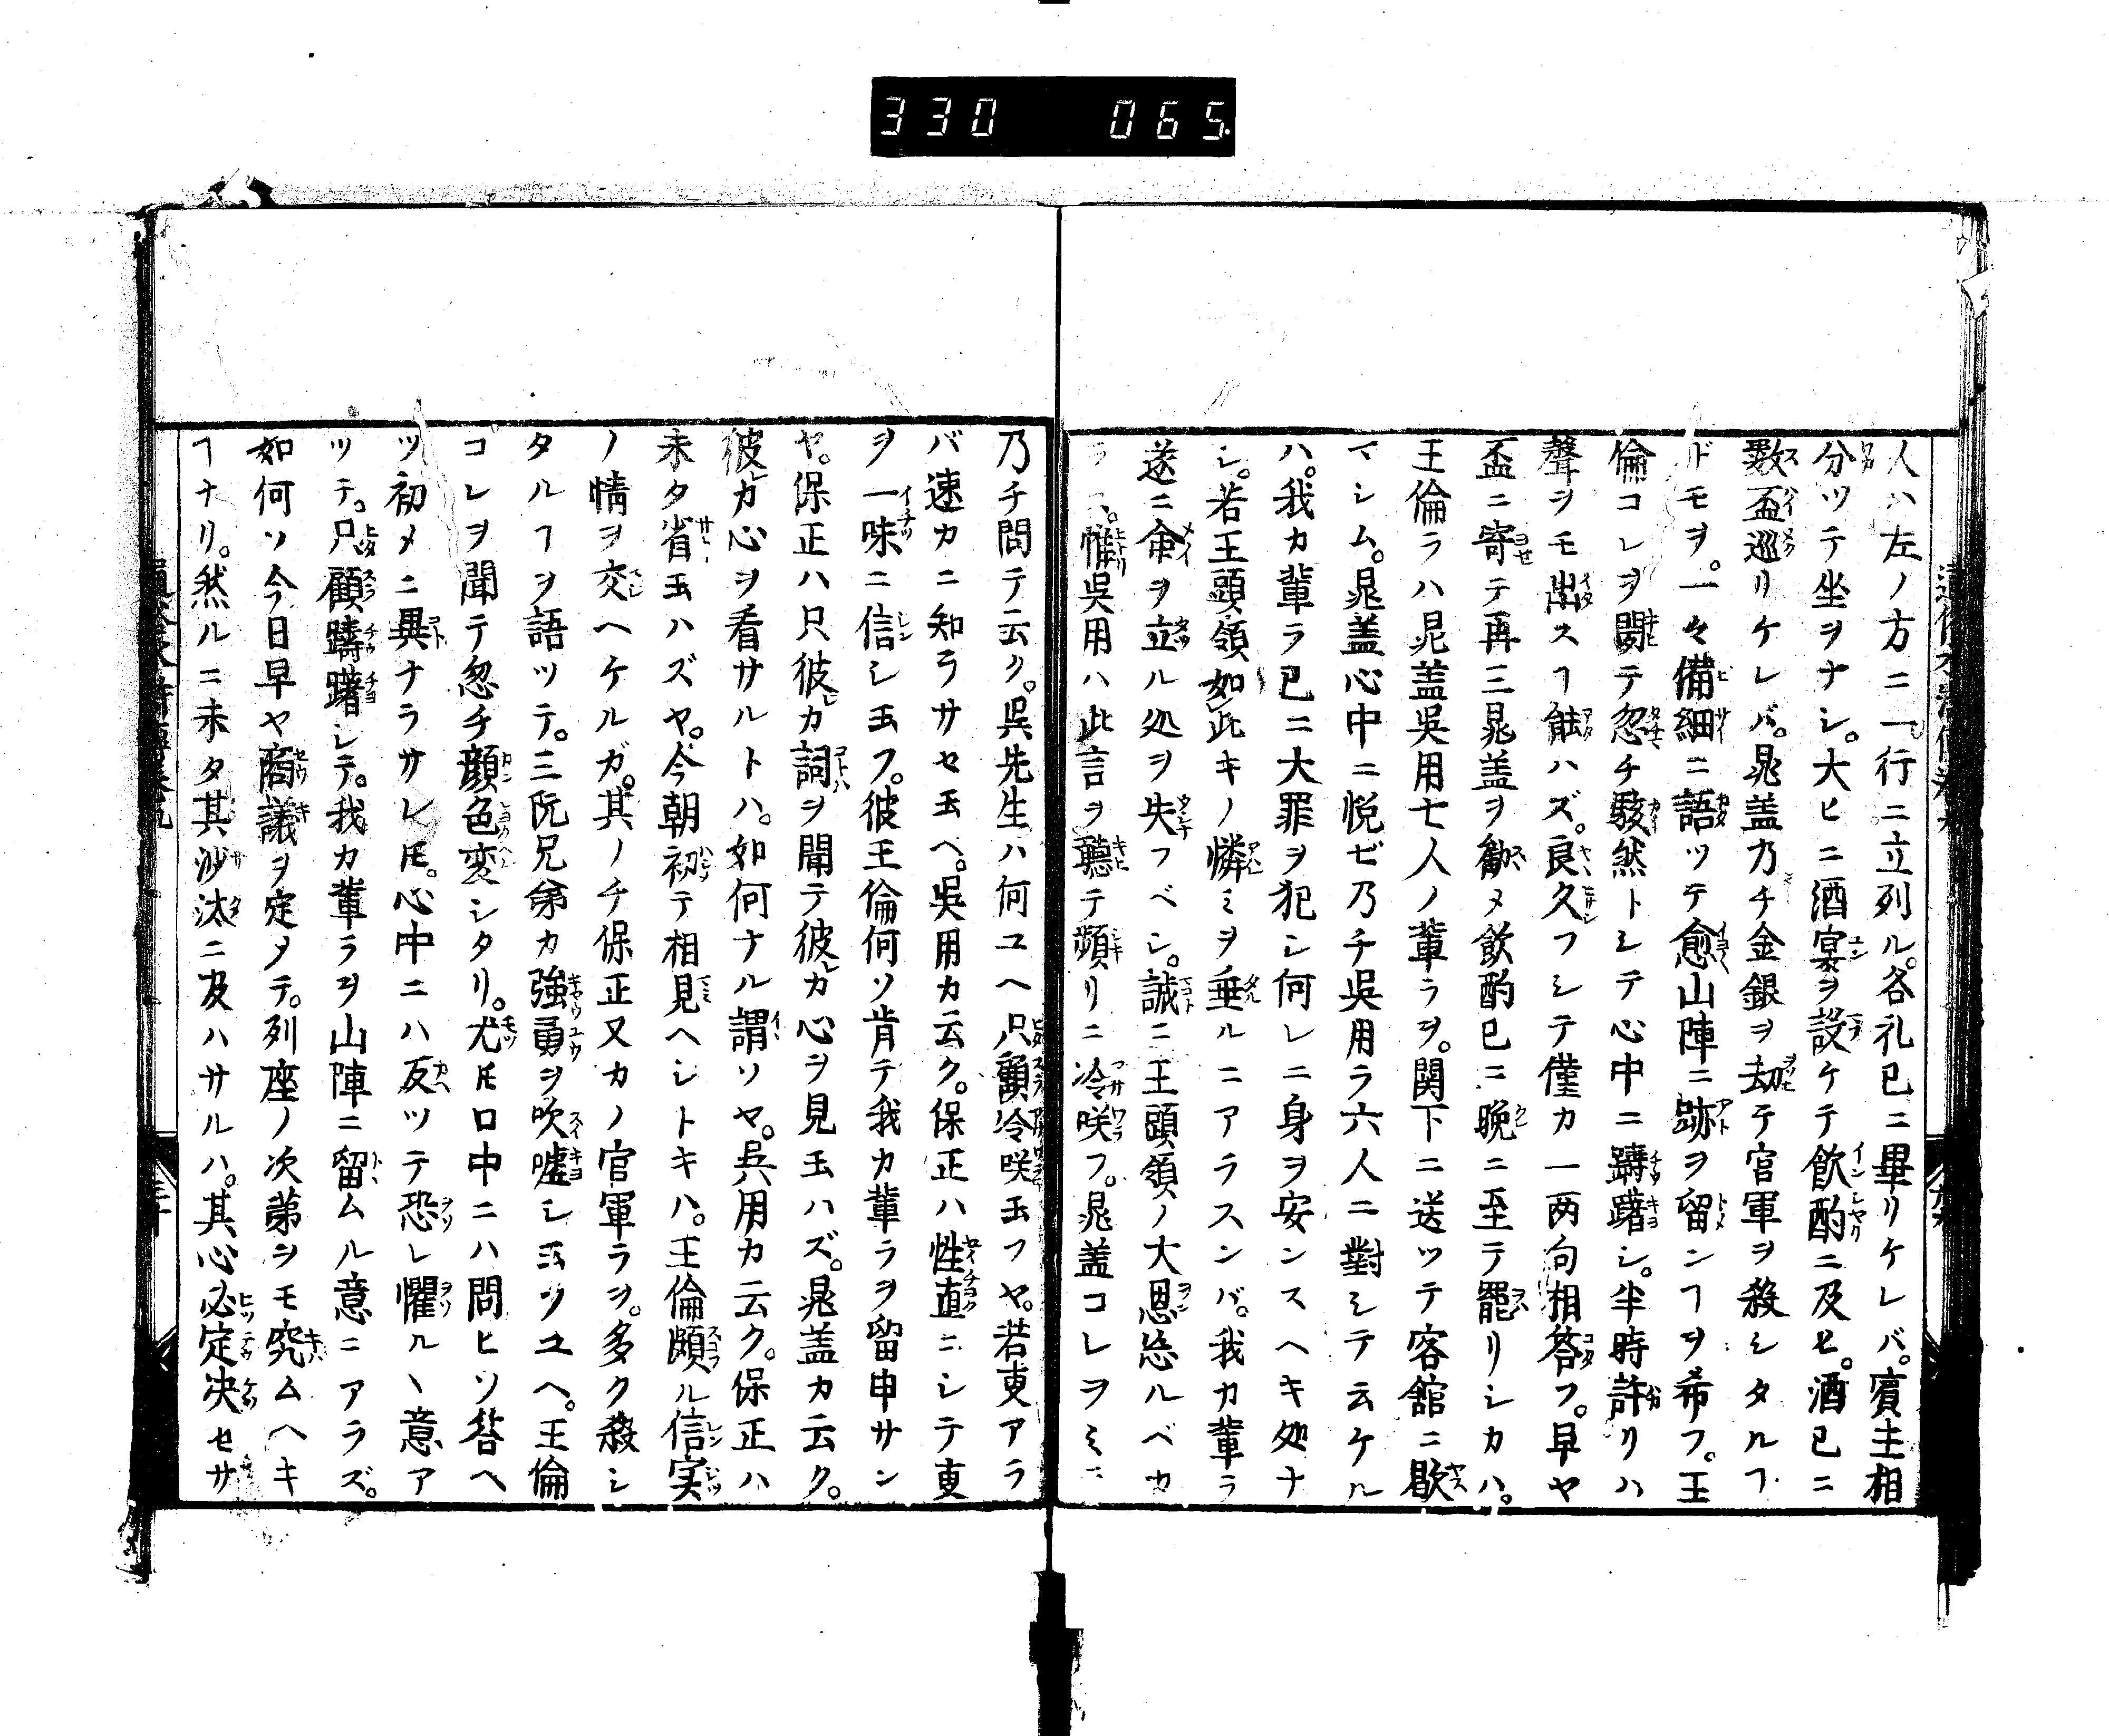 330 065
人ハ左ノ方ニ一行ニ立列ル。各礼已ニ畢リケレバ。賓主相
分ツテ坐ヲナシ。大ヒニ酒宴ヲ設ケテ飲酌ニ及ヒ。酒已ニ
數盃巡リケレバ。晁盖乃チ金銀ヲ劫テ官軍ヲ殺シタルヿ
ドモヲ。一々備細ニ語ツテ愈山陣ニ跡ヲ留ンヿヲ希フ。王
倫コレヲ聞テ忽チ駭然トシテ心中ニ躊躇シ。半時許リハ
聲ヲモ出スヿ能ハズ。良久フシテ僅カ一两句相答フ。早ヤ
盃ニ寄テ再三晁盖ヲ勧メ飲酌已ニ晩ニ至テ罷リシカハ。
王倫ラハ晁盖吳用七人ノ輩ラヲ。関下ニ送ツテ客舘ニ歇
マシム。晁盖心中ニ悦ビ乃チ吳用ラ六人ニ對シテ云ケル
ハ。我カ輩ラ已ニ大罪ヲ犯シ何レニ身ヲ安ンスヘキ処ナ
シ。若王頭領如此キノ憐ミヲ垂ルニアラスンバ。我カ輩ラ
遂ニ命ヲ立ル処ヲ失フベシ。誠ニ王頭領ノ大恩忘ルベカ
ラス。惟吳用ハ此言ヲ聽テ頻リニ冷咲フ。晁盖コレヲミテ
乃チ問テ云ク。吳先生ハ何ユヘ只顧冷咲玉フヤ。若叓アラ
バ速カニ知ラサセ玉ヘ。吳用カ云ク。保正ハ性直ニシテ叓
ヲ一味ニ信シ玉フ。彼王倫何ソ肯テ我カ輩ラヲ留申サン
ヤ。保正ハ只彼カ詞ヲ聞テ彼カ心ヲ見玉ハズ。晁盖カ云ク。
彼カ心ヲ看サルトハ。如何ナル謂ソヤ。吳用カ云ク。保正ハ
未タ省玉ハズヤ。今朝初テ相見ヘシトキハ。王倫頗ル信実
ノ情ヲ交ヘケルガ。其ノチ保正又カノ官軍ラヲ。多ク殺シ
タルヿヲ語ツテ。三阮兄弟カ強勇ヲ吹嘘シ玉フユヘ。王倫
コレヲ聞テ忽チ顔色変シタリ。尤𪜈口中ニハ問ヒツ答ヘ
ツ初メニ異ナラサレ𪜈。心中ニハ反ツテ恐レ懼ルヽ意ア
ツテ。只顧躊躇シテ。我カ輩ラヲ山陣ニ留ムル意ニアラズ。
如何ソ今日早ヤ商議ヲ定メテ。列座ノ次第ヲモ究ムヘキ
ヿナリ。然ルニ未タ其沙汰ニ及ハサルハ。其心必定决セサ